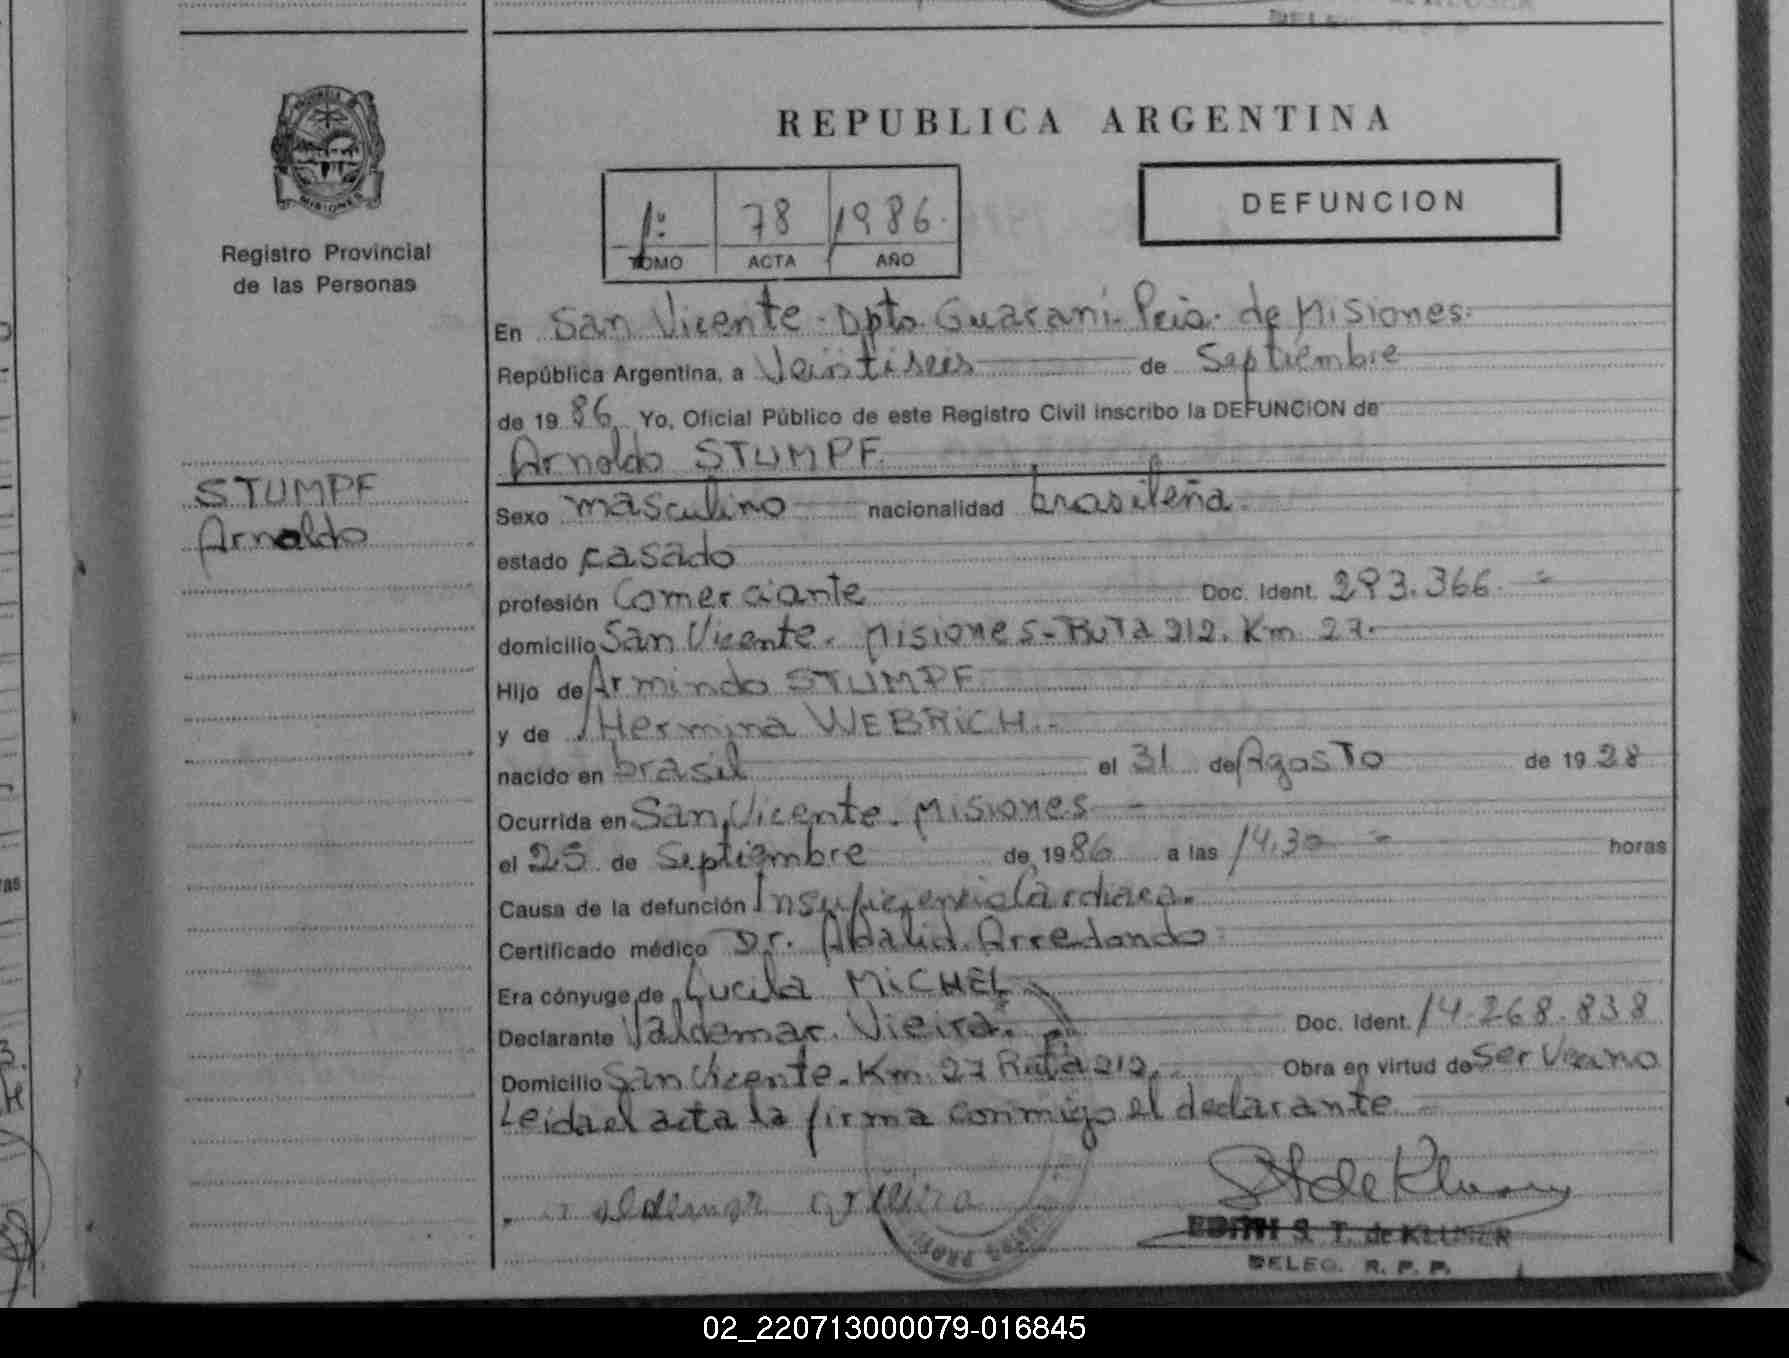 REPUBLICA ARGENTINA
PROVINCIA DE
MISIONES
Registro Provincial
de las Personas
1º 78 1986.
TOMO ACTA AÑO
DEFUNCION
En San Vicente. Dpto. Guaraní. Pcia. de Misiones.
República Argentina, a Veintiseis de Septiembre
de 19 86. Yo, Oficial Público de este Registro Civil inscribo la DEFUNCION de
Arnoldo STUMPF.
STUMPF
Arnoldo
Sexo masculino nacionalidad brasileña.
estado casado
profesión Comerciante Doc. Ident. 293.366.=
domicilio San Vicente. Misiones-Ruta 212. Km 27.
Hijo de Armindo STUMPF
y de Hermina WEBRICH.-
nacido en brasil el 31 de Agosto de 19 28
Ocurrida en San Vicente. Misiones -
el 25 de Septiembre de 19 86 a las 14,30 = horas
Causa de la defunción Insuficiencia Cardiaca.
Certificado médico Dr. Adalid Arredondo
Era cónyuge de Lucila MICHEL
Declarante Valdemar. Vieira. Doc. Ident. 14.268.838
Domicilio San Vicente. Km 27 Ruta 212. Obra en virtud de Ser Vecino
Leida el acta la firma conmigo el declarante
Valdemar Vieira
EDITH S. T. de KLUSNER
DELEG. R. P. P.
02_220713000079-016845